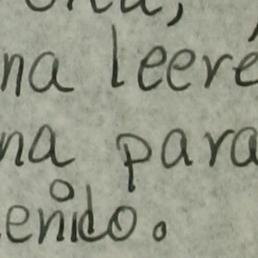 na leeré
na para
enido.